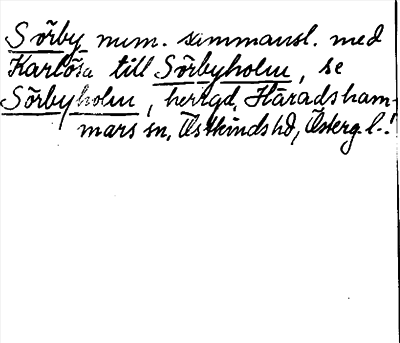 Sörby num. sammansl. med
Karlösa till Sörbyholm, se
Sörbyholm, herrgd, Häradsham-
mars sn, Östkinds hd, Österg.l.!